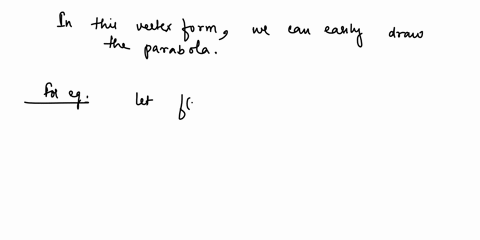 In this vertex form, we can easily draw
the parabola.
for eg. let f(